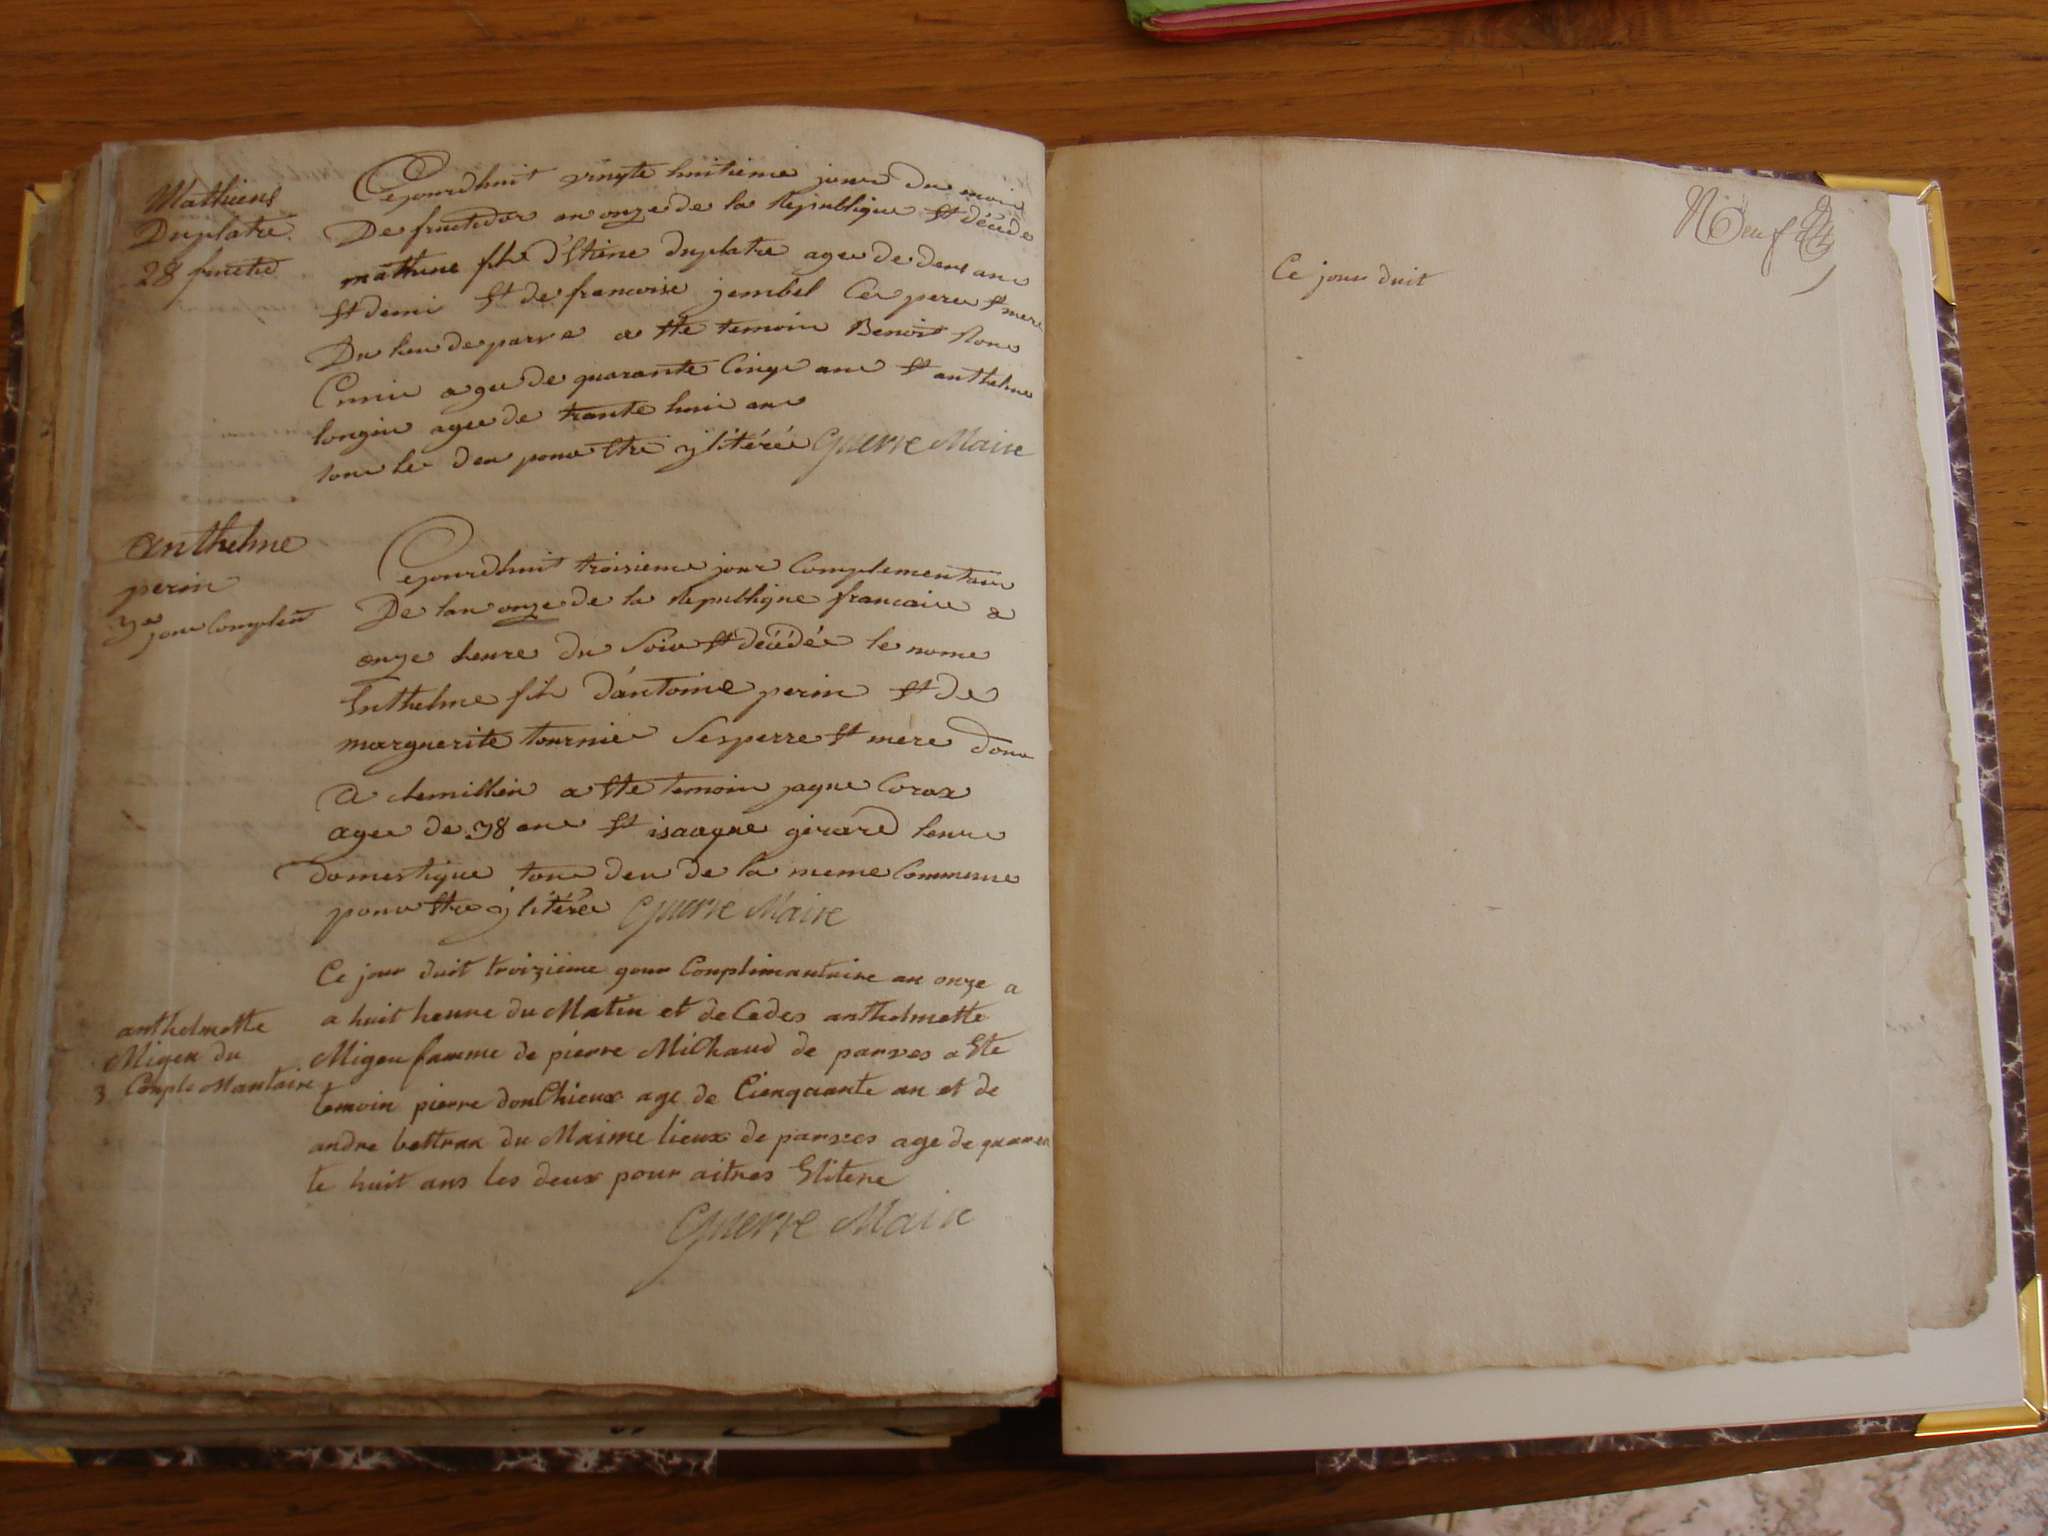 Mathieus
Duplatre
28 fructid
Cejourdhuit vingte huitieme jour du mois
De fructidor an onze de la Republique St décéde
mathieue fils d'Etiene duplatre agee de deux ans
St demi St de francoise gembel Ces pere St mere
Du lieu de parve a Ste temoin Benoit
Cunie agee de quarante Cinqe ans St anthelme
longin agee de trante huit ans
tous les deu pour Stre y litérée Guerre Maire
anthelme
perin
3e jour Complem
Cejourdhuit troisieme jour Complementaire
De lan onze de la Republique francaise a
onze heure du Soire St décédée le nome
Enthelme fils d'antoine perin St de
marguerite tournier Ses perre St mére dom
a chemillin a Ste temoin jaque Corax
agee de 38 ans St isaaque girard leur
domestique tous deu de la meme Commune
pour Stre y litérée Guerre Maire
anthelmette
Migeu du
3 Comple Mantaire
Ce jour duit troizième gour Complimantaire an onze a
a huit heure du Matin et deCedes anthelmette
Migeu famme de pierre MiChaud de parves a Ete
temoin pierre donChieux age de Cienquante an et de
andre bettrax du Maime lieux de parves age de quaran
te huit ans les deux pour aitres Slitere
Guerre Maire
Neuf
Ce jour duit